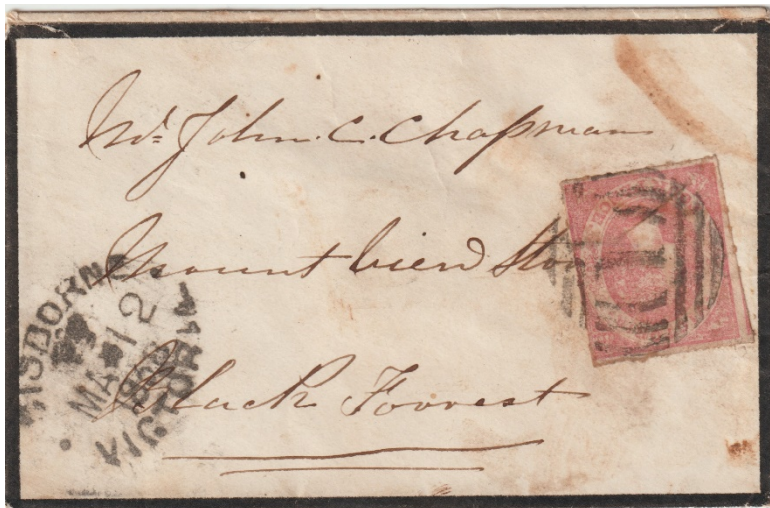 Mr. John. C. Chapman
Mount View Sto
Black Forrest
ISBORN
MA 12
VICTORIA